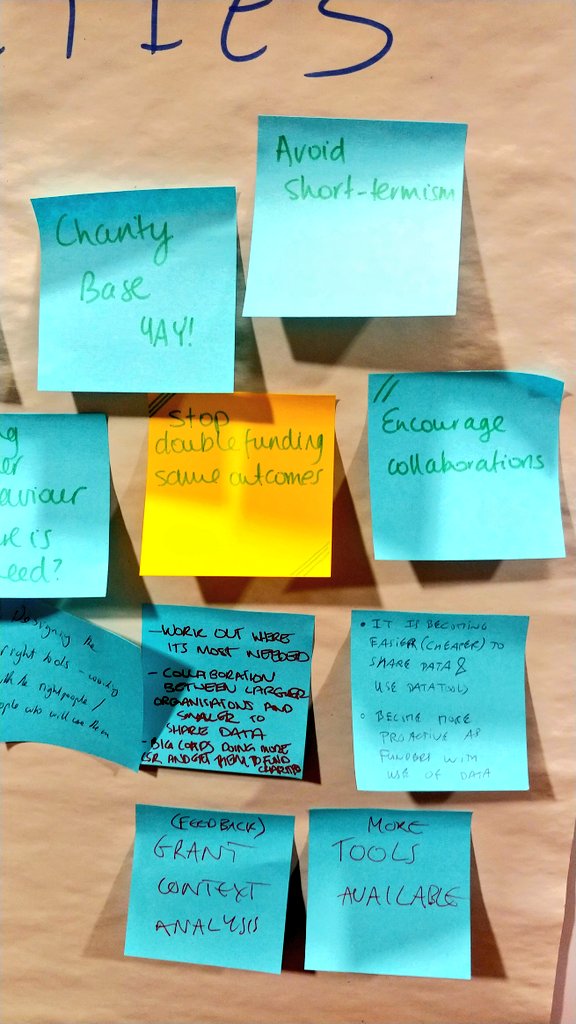 TIES
Avoid
short-termism
Charity
Base
YAY!
Stop
double funding
same outcomes
Encourage
collaborations
is
need?
Designing the
right tools - working
the right people /
people who will use them
- WORK OUT WHERE
ITS MOST NEEDED
- COLLABORATION
BETWEEN LARGER
ORGANISATIONS AND
SMALLER TO
SHARE DATA
- BIG CORPS DOING MORE
CSR AND GET THEM TO FUND
CHARITIES
• IT IS BECOMING
EASIER (CHEAPER) TO
SHARE DATA &
USE DATA TOOLS
• BECOME MORE
PROACTIVE AS
FUNDERS WITH
USE OF DATA
(FEEDBACK)
GRANT
CONTEXT
ANALYSIS
MORE
TOOLS
AVAILABLE